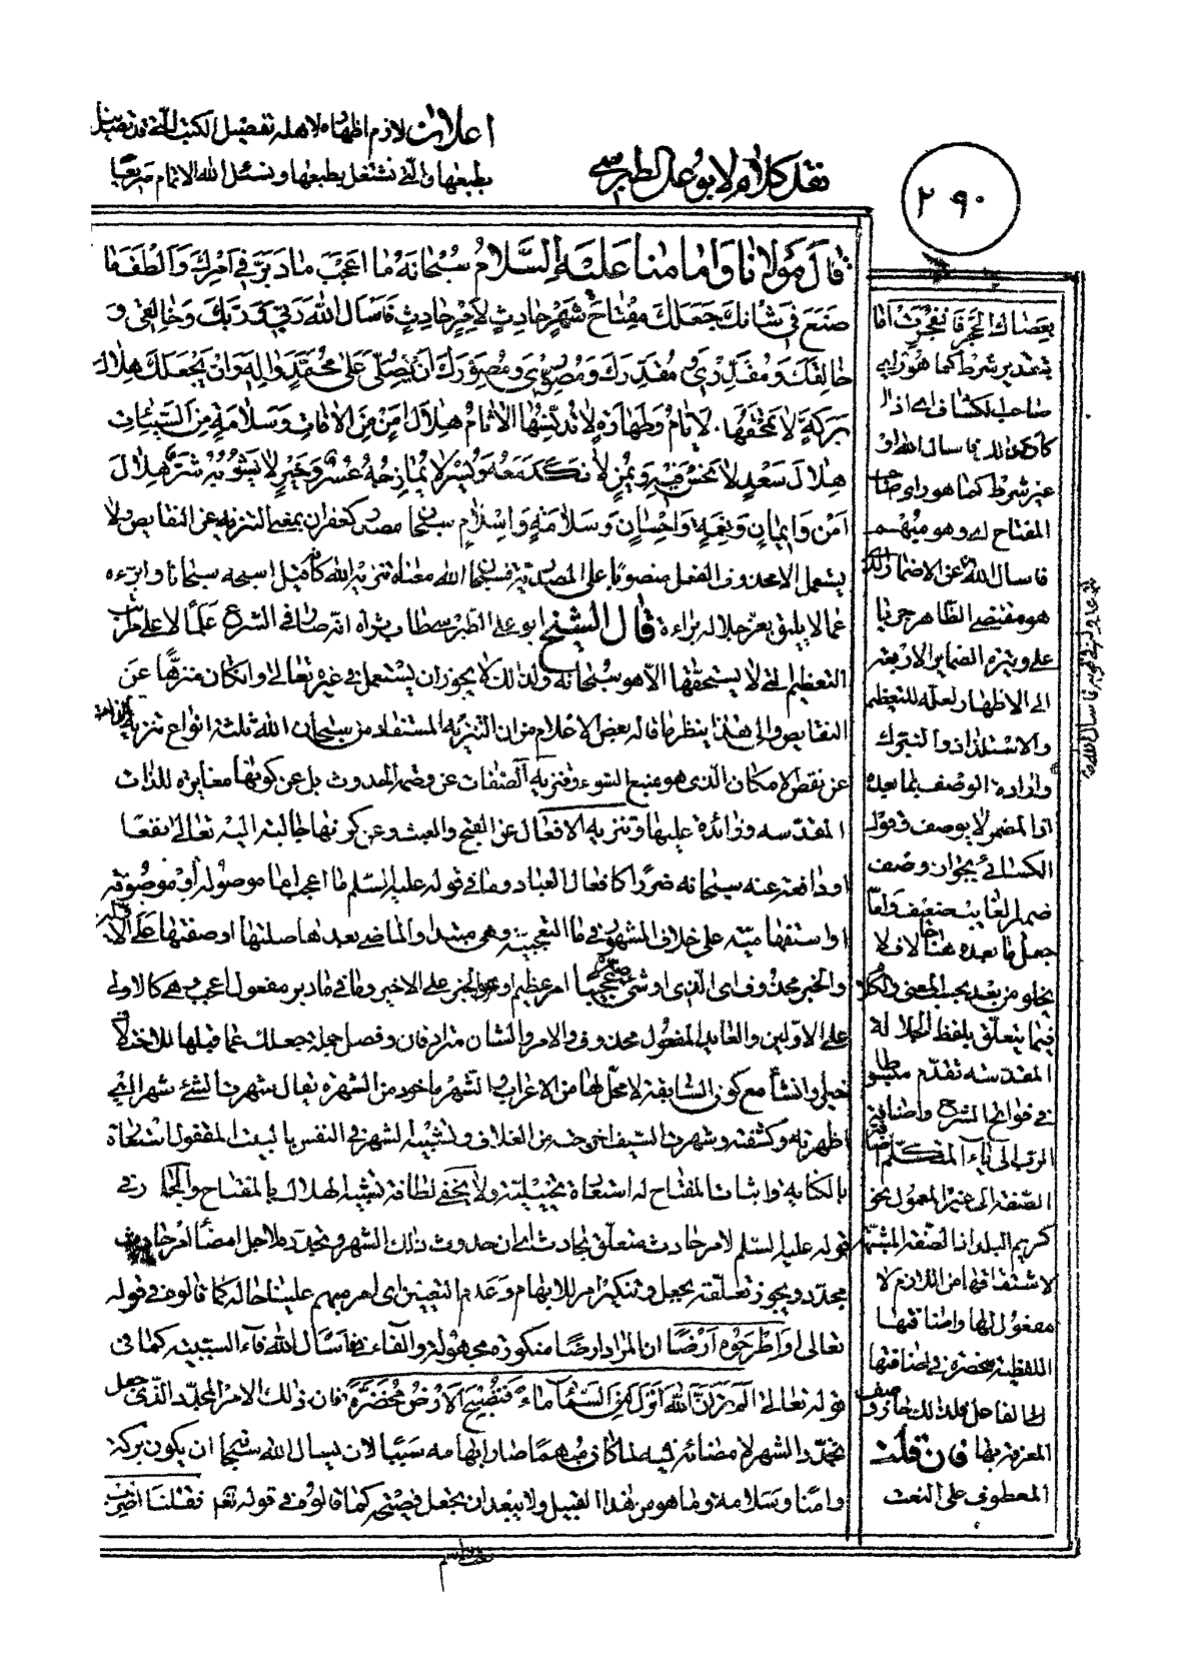 اعلان لازم اظهاره لاهله تفصيل الكتب التي قد تصدينا
بطبعها والتي نشتغل بطبعها ونسئل الله الاتمام
نقد كلام لابو علي الطبرسي
٢٩٠
قال مولانا وامامنا عليه السلام سبحانه ما اعجب ما دبر في امرك والطف ما
صنع في شانك جعلك مفتاح شهر حادث لامر حادث فاسال الله ربي وربك وخالقي و
خالقك ومقدري ومقدرك ومصوري ومصورك ان يصلي على محمد واله وان يجعلك هلال
بركة لا تمحقها الايام وطهارة لا تدنسها الاثام هلال امن من الافات وسلامة من السيئات
هلال سعد لا نحس فيه ويمن لا نكد معه ويسر لا يمازجه عسر وخير لا يشوبه شر هلال
امن وايمان ونعمة واحسان وسلامة واسلام سبحان مصدر كغفران بمعنى التنزيه عن النقايص ولا
يستعمل الا محذوف الفعل منصوبا على المصدرية فسبحان الله معناه تنزيه الله كانه قيل اسبحه سبحانا وابرءه
عما لا يليق بعز جلاله براءة قال الشيخ ابو علي الطبرسي طاب ثراه انه صار في الشرع علما لاعلى مراتب
التعظيم التي لا يستحقها الا هو سبحانه ولذلك لا يجوز ان يستعمل في غيره تعالى وان كان منزها عن
النقايص والى هذا ينظر ما قاله بعض الاعلام من ان التنزيه المستفاد من سبحان الله ثلثة انواع تنزيه الذات
عن نقص الامكان الذي هو منبع السوء وتنزيه الصفات عن وصمة الحدوث بل عن كونها مغايرة للذات
المقدسه وزائدة عليها وتنزيه الافعال عن القبح والعبث وعن كونها جالبة اليه تعالى نفعا
او دافعة عنه سبحانه ضررا كافعال العباد وما في قوله عليه السلم ما اعجب اما موصولة او موصوفة
او استفهامية على خلاف المشهور في ما التعجبية وهي مبتدا والماضي بعدها صلتها او صفتها على الاولين
والخبر محذوف اي الذي او شيء صيره عجيبا امر عظيم او هو الخبر على الاخير وما في ما دبر مفعول اعجب وهي كالاولى
على الاولين والعايد المفعول محذوف والامر والشان مترادفان وفصل جملة جعلك عما قبلها للاختلاف
خبرا وانشاء مع كون السابقة لا محل لها من الاعراب الشهر ماخوذ من الشهرة يقال شهرت الشيء شهرا اي
اظهرته وكشفته وشهرت السيف اخرجته من الغلاف وتشبيه الشهر في النفس بالبيت المقفول استعارة
بالكناية واثبات المفتاح له استعارة تخييلية ولا يخفى لطافة تشبيه الهلال بالمفتاح والجار في
قوله عليه السلم لامر حادث متعلق بحادث اي ان حدوث ذلك الشهر وتجدده لاجل امضاء امر حادث
مجدد ويجوز تعلقه بجعل وتنكير امر للابهام وعدم التعيين اي امر مبهم علينا حاله كما قالوه في قوله
تعالى واطرحوه ارضا ان المراد ارضا منكورة مجهولة والفاء في فاسال الله فاء السببية كما في
قوله تعالى الم تر ان الله انزل من السماء ماء فتصبح الارض مخضرة فان ذلك الامر المجدد الذي جعل
تجدد الشهر لامضائه فيه لما كان مبهما صار ابهامه سببا لان يسال الله سبحانه ان يكون بركة
وامنا وسلامة وما هو من هذا القبيل ولا يبعد ان يجعل فصيحة كما قالوه في قوله تعالى فقلنا اضرب
بعصاك الحجر فانفجرت اما
بتقدير شرط كما هو راي
صاحب الكشاف اي اذا
كان كذلك فاسال الله او
غير شرط كما هو راي صاحب
المفتاح اي وهو مبهم
فاسال الله عن الاضمار الذي
هو مقتضى الظاهر جريا
على وتيرة الضماير الاربعة
الى الاظهار لعله للتعظيم
والاستلذاذ والتبرك
وارادة الوصف بما بعده
اذ المضمر لا يوصف وقول
الكسائي بجواز وصف
ضمير الغايب ضعيف واما
جعل ما بعده حالا فلا
يخلو من بعد بحسب المعنى والكلام
فيما يتعلق بلفظ الجلالة
المقدسه تقدم مبسوطا
في فواتح الشرح واضافة
الرب الى ياء المتكلم اضافة
الصفة الى غير المعمول نحو
كريم البلد اذ الصفة المشبهة
لاشتقاقها من اللازم لا
مفعول لها واضافتها
اللفظية منحصرة في اضافتها
الى الفاعل فلذلك جاز وصف
المعرفة بها فان قلت
المعطوف على النعت